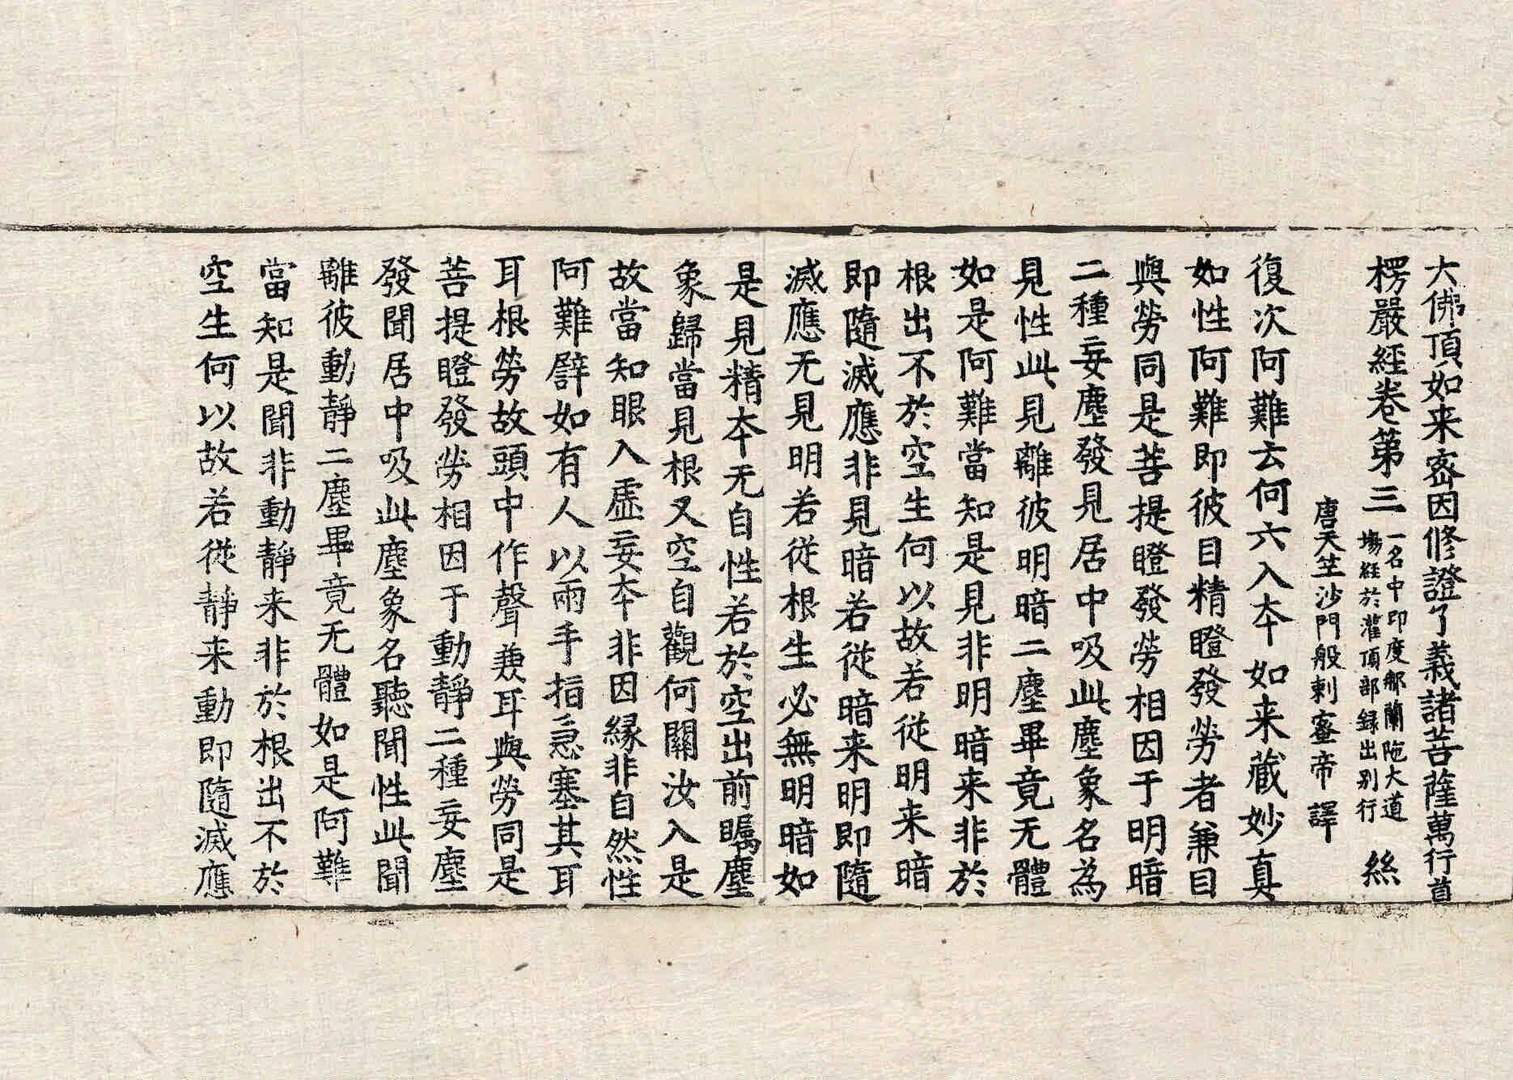 大佛頂如来密因修證了義諸菩薩萬行首
楞嚴經卷第三 一名中印度那蘭陁大道場經於灌頂部録出别行 絲
唐天竺沙門般剌蜜帝 譯
復次阿難云何六入夲如来藏妙真
如性阿難即彼目精瞪發勞者兼目
與勞同是菩提瞪發勞相因于明暗
二種妄塵發見居中吸此塵象名為
見性此見離彼明暗二塵畢竟无體
如是阿難當知是見非明暗来非於
根出不於空生何以故若從明来暗
即隨滅應非見暗若從暗来明即隨
滅應无見明若從根生必無明暗如
是見精夲无自性若於空出前矚塵
象歸當見根又空自觀何關汝入是
故當知眼入虛妄夲非因縁非自然性
阿難譬如有人以兩手指急塞其耳
耳根勞故頭中作聲兼耳與勞同是
菩提瞪發勞相因于動靜二種妄塵
發聞居中吸此塵象名聽聞性此聞
離彼動靜二塵畢竟无體如是阿難
當知是聞非動靜来非於根出不於
空生何以故若從靜来動即隨滅應